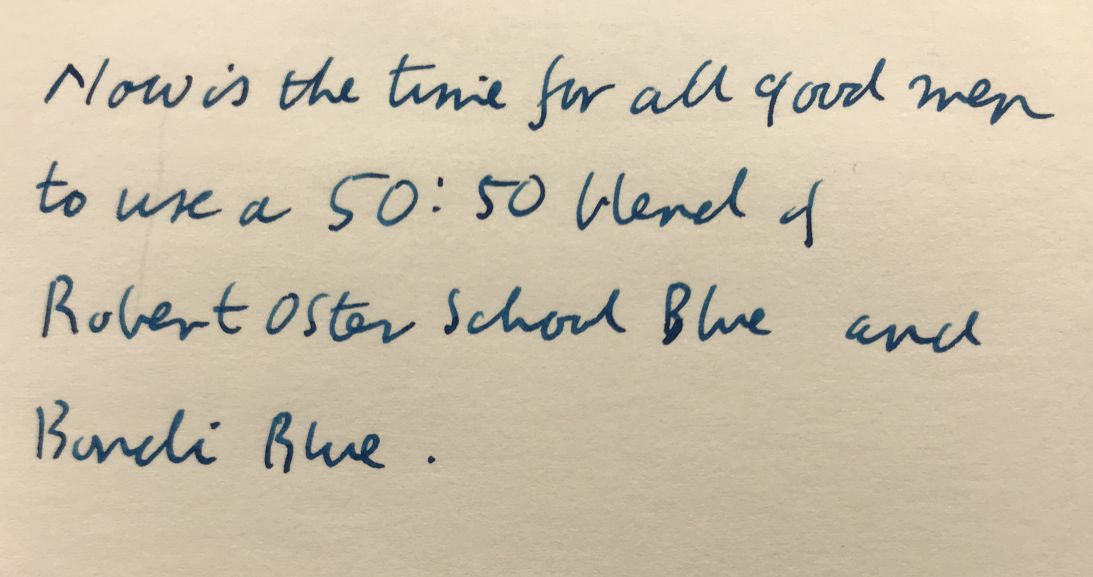 Now is the time for all good men
to use a 50:50 blend of
Robert Oster School Blue and
Bondi Blue.